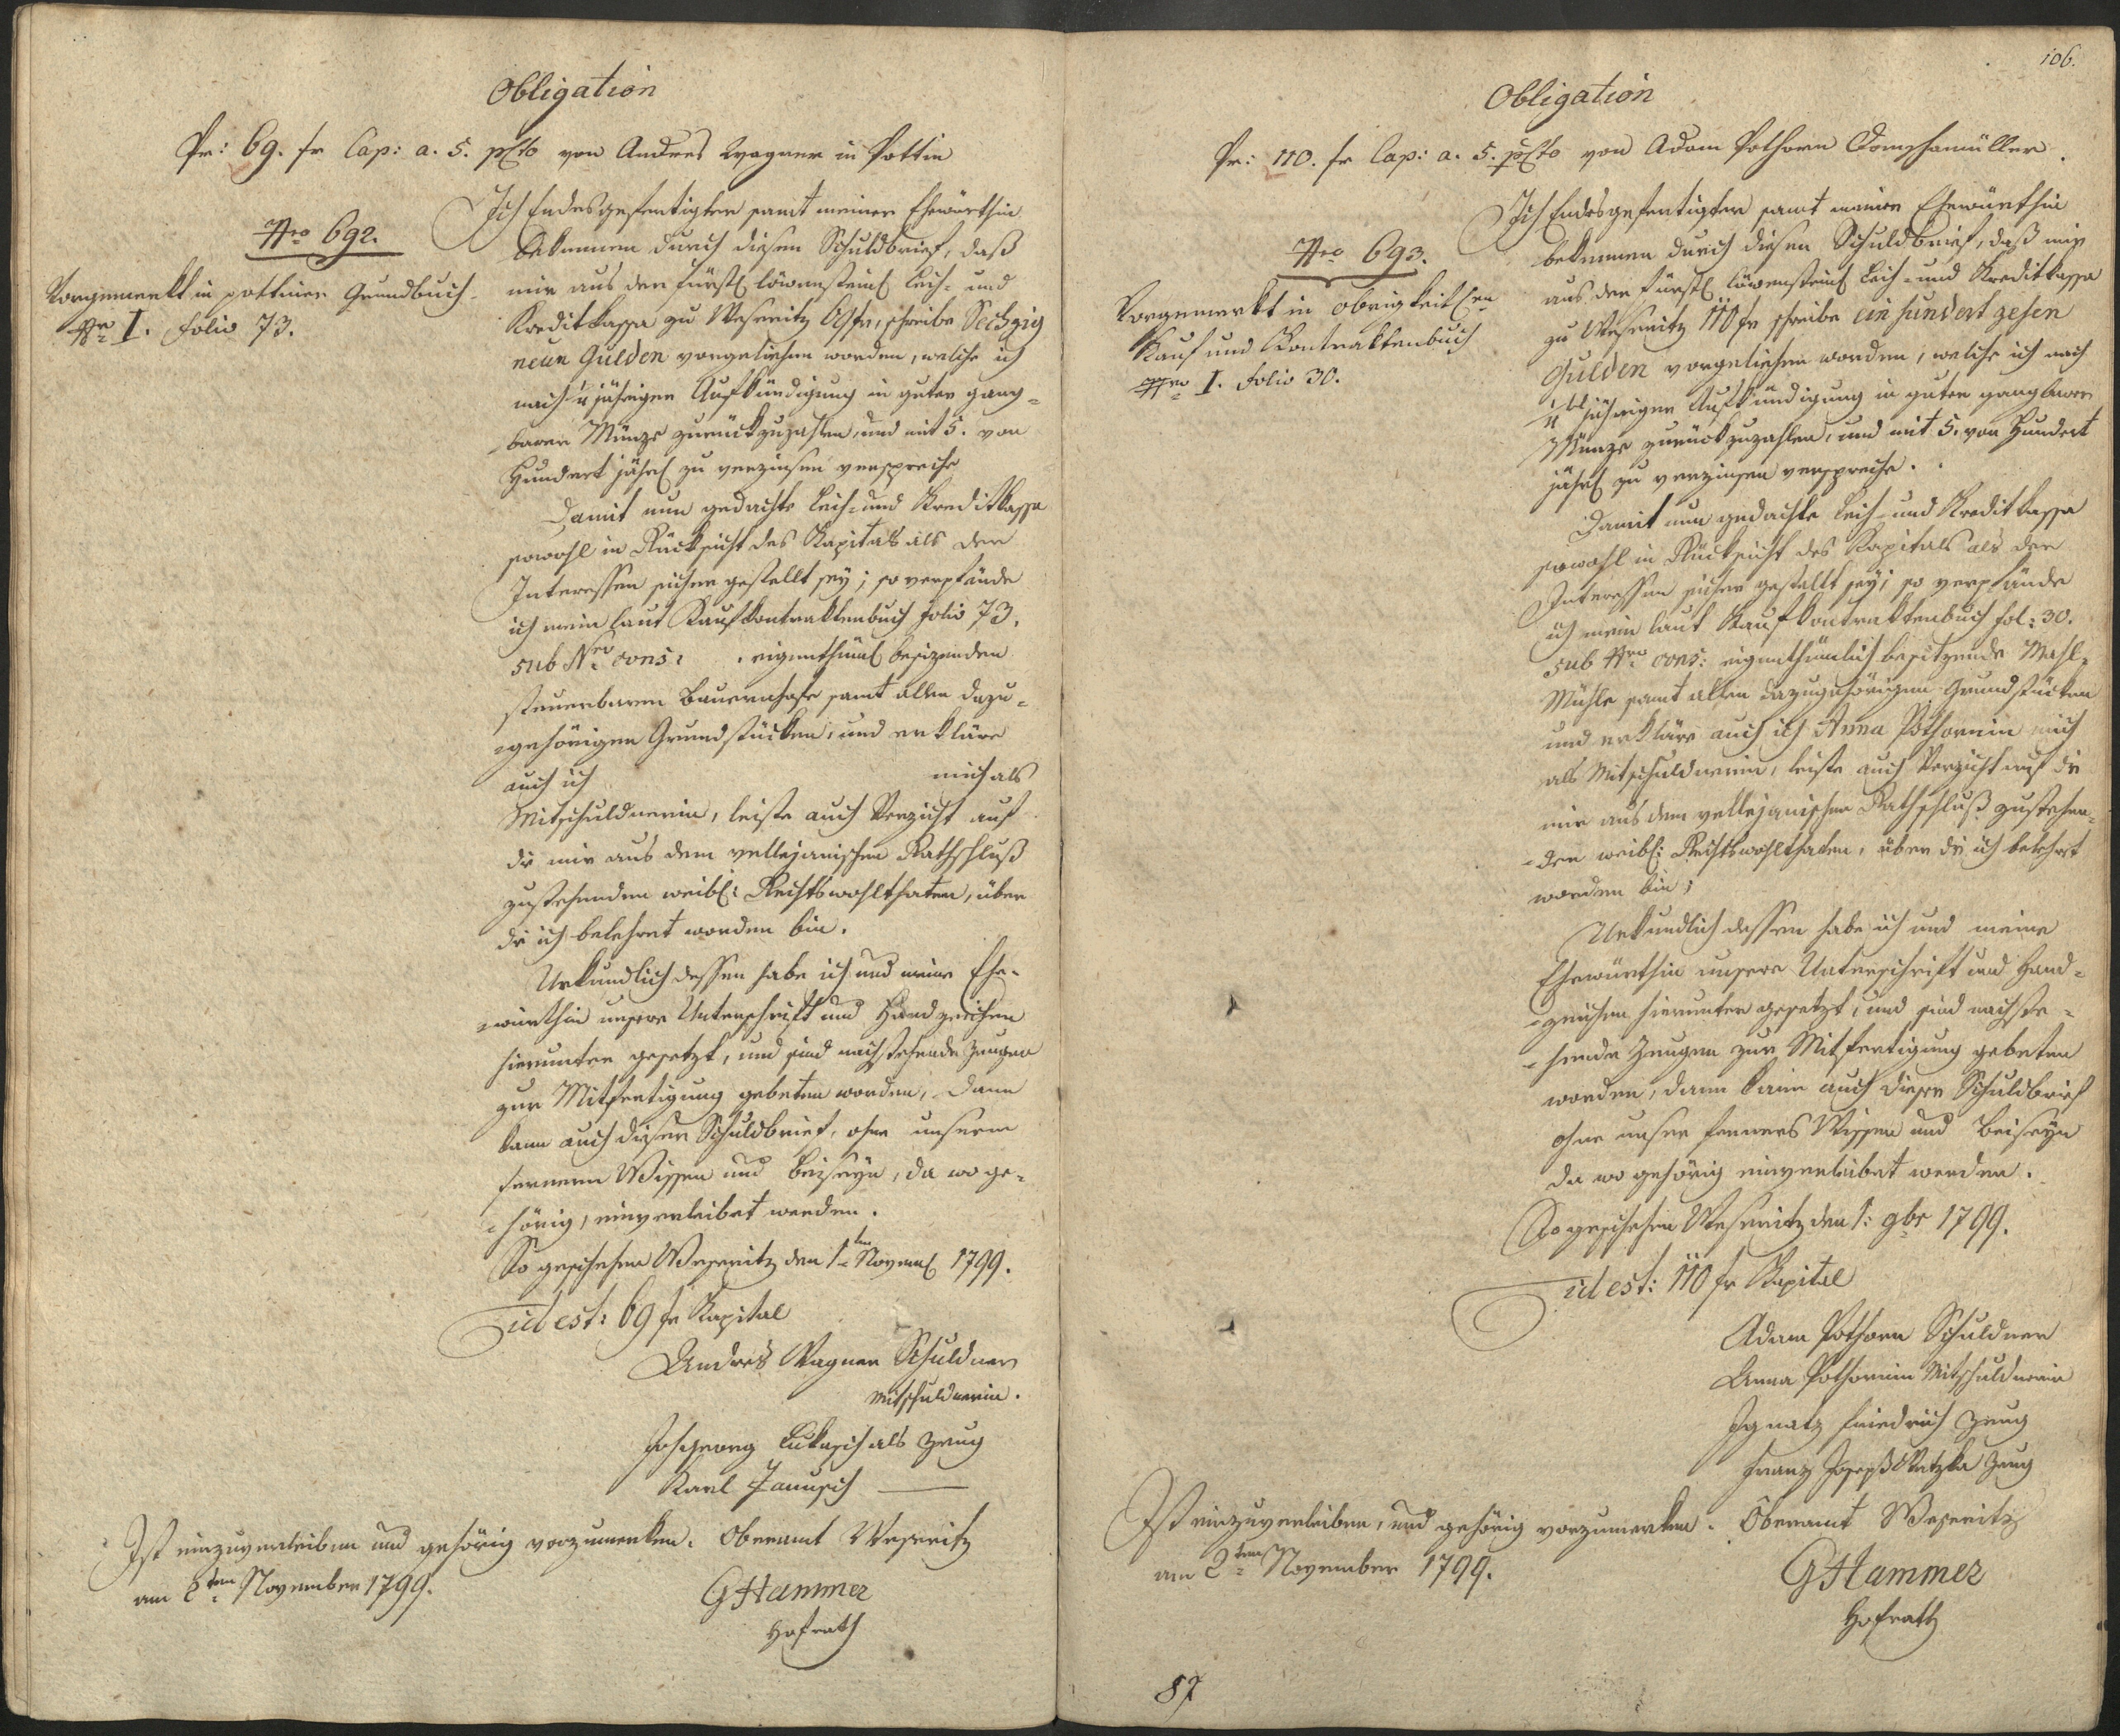 Obligation
Pr: 69. fr Cap: a. 5. pCto von Andres Wagner in Pottin
Nro 692.
Vorgemerkt in pottiner Grundbuch
Nro I. Folio 73.
Ich Endesgefertigter samt meiner Ehewürthin
bekennen durch diesen Schuldbrief, daß
mir aus der fürstl löwensteinl Leih- und
Kreditkassa zu Weseritz 69 fr, schreibe Sechzig
neun Gulden vorgeliehen worden, welche ich
nach 1/4 jähriger Aufkündigung in guter gang-
barer Münze zurückzuzahlen, und mit 5. von
Hundert jährl zu verzinsen verspreche
Damit nun gedachte Leih- und Kreditkassa
sowohl in Rücksicht des Kapitals als der
Interessen sicher gestellt sey; so verpfände
ich mein laut Kaufkontraktenbuch Folio 73.
sub Nro cons: . eigenthüml besizenden
steuerbaren Bauernhofe samt allen dazu-
gehörigen Grundstücken, und erkläre
auch ich mich als
Mitschuldnerin, leiste auch Verzicht auf
die mir aus dem vellejanischen Rathschluß
zustehenden weibl: Rechtswohlthaten, über
die ich belehret worden bin.
Urkundlich dessen habe ich und meine Ehe-
würthin unsere Unterschrift und Handzeichen
hierunter gesetzt, und sind nachstehende Zeugen
zur Mitfertigung gebeten worden, dann
kann auch dieser Schuldbrief, ohne unserm
fernern Wissen und Beiseyn, da wo ge-
hörig, einverleibet werden.
So geschehen Weseritz den 1ten Novem 1799.
id est: 69 fr Kapital
Andres Wagner Schuldner
Mitschuldnerin.
Joh Georg Lukasch als Zeug
Karl Januschl
Ist einzuverleiben und gehörig vorzumerken. Oberamt Weseritz
am 2ten November 1799.
GHammer
Hofrath
106.
Obligation
Pr: 110. fr Cap: a. 5. pCto von Adam Pothorn Domschamüller.
Nro 693.
Vorgemerkt in obrigkeitlen
Kauf und Kontraktenbuch
Nro I. Folio 30.
Ich Endesgefertigter samt meiner Ehewürthin
bekennen durch diesen Schuldbrief, daß mir
aus der fürstl löwensteinl Leih- und Kreditkassa
zu Weseritz 110 fr schreibe ein hundert zehen
Gulden vorgeliehen worden, welche ich nach
1/4 jähriger Aufkündigung in guter gangbarer
Münze zurückzuzahlen, und mit 5. von Hundert
jährl zu verzinsen verspreche.
Damit nun gedachte Leih- und Kreditkassa
sowohl in Rücksicht des Kapitals als der
Interessen sicher gestellt sey; so verpfände
ich mein laut Kaufkontraktenbuch fol: 30.
sub Nro cons: eigenthümlich besitzende Mahl-
Mühle samt allen dazugehörigen Grundstücken
und erkläre auch ich Anna Pothornin mich
als Mitschuldnerin, leiste auch Verzicht auf die
mir aus dem vellejanischen Rathschluß zustehen-
den weibl: Rechtswohlthaten, über die ich belehrt
worden bin;
Urkundlich dessen habe ich und meine
Ehewürthin unsere Unterschrift und Hand-
zeichen hierunter gesetzt, und sind nachste-
hende Zeugen zur Mitfertigung gebeten
worden, dann kann auch dieser Schuldbrief
ohne unser ferners Wissen und Beiseyn
da wo gehörig einverleibet werden.
So geschehen Weseritz den 1: 9br 1799.
id est: 110 fr Kapital
Adam Pothorn Schuldner
Anna Pothornin Mitschuldnerin
Ignatz Friedrich Zeug
Franz Joseph Watzka Zeug
Ist einzuverleiben, und gehörig vorzumerken. Oberamt Weseritz
am 2ten November 1799.
GHammer
Hofrath
87